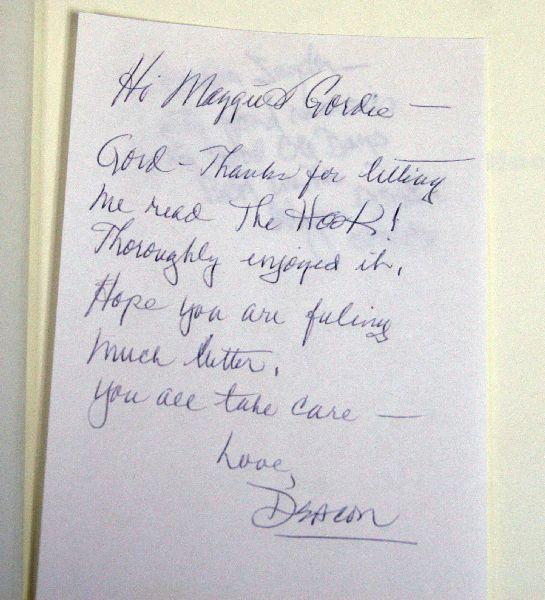 Hi Gordie —
Gord - Thanks for letting
me read The Hook!
Thoroughly enjoyed it.
Hope you are feeling
much better.
You all take care —
Love,
Deacon